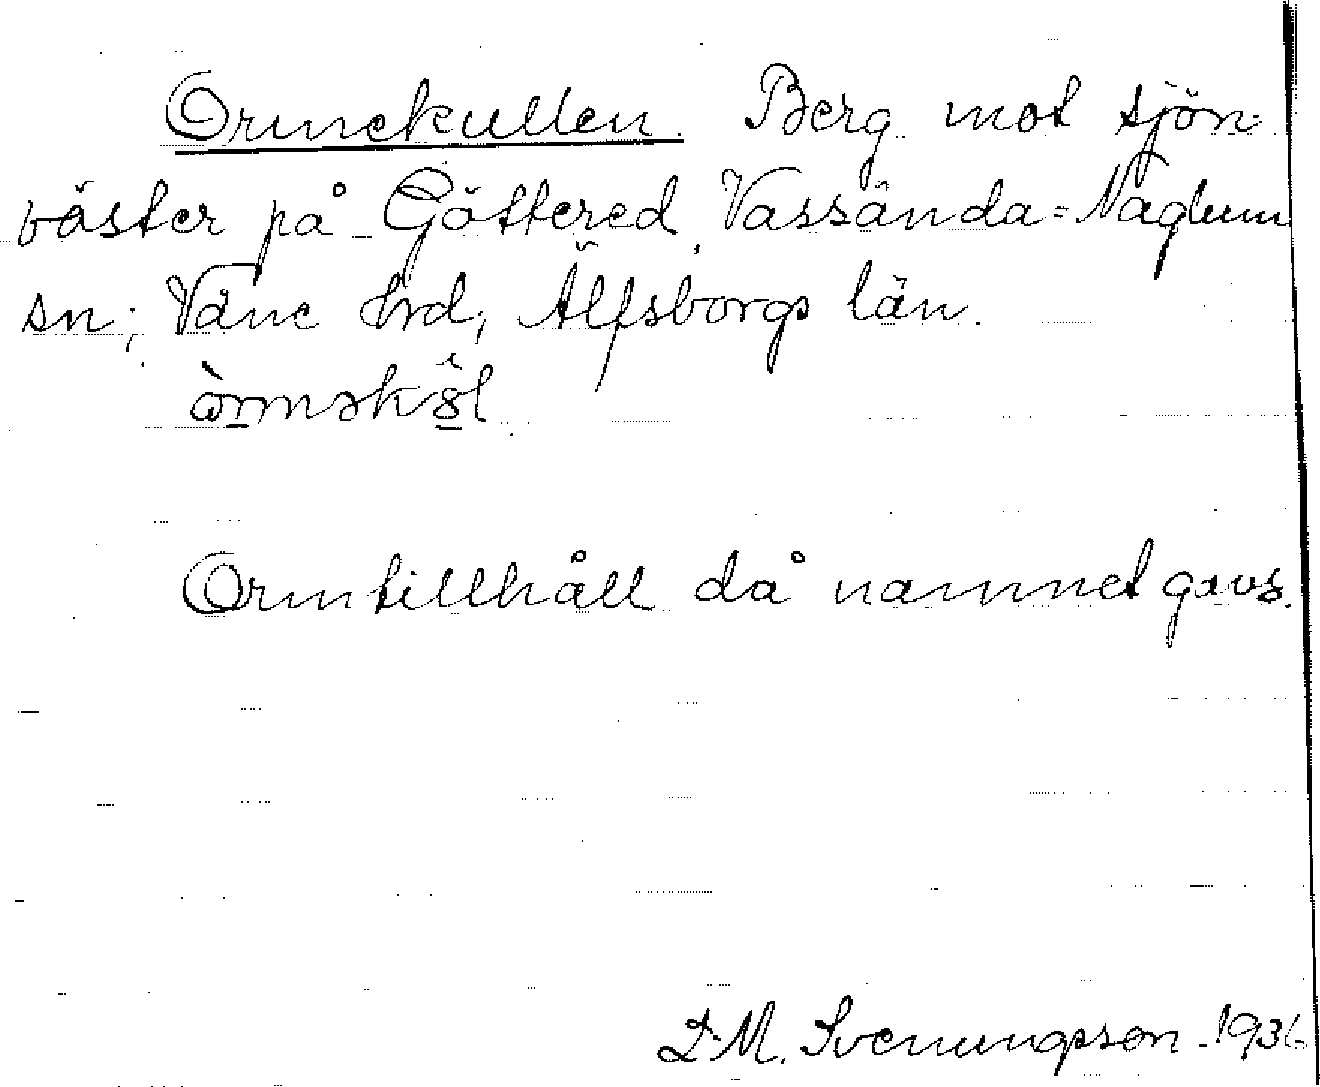 Ormekullen. Berg mot sjön
väster på Göttered, Vassända-Naglum
sn; Väne hrd; Älfsborgs län.
Ormtillhåll då namnet gavs.
D.M. Svenungsson 1936